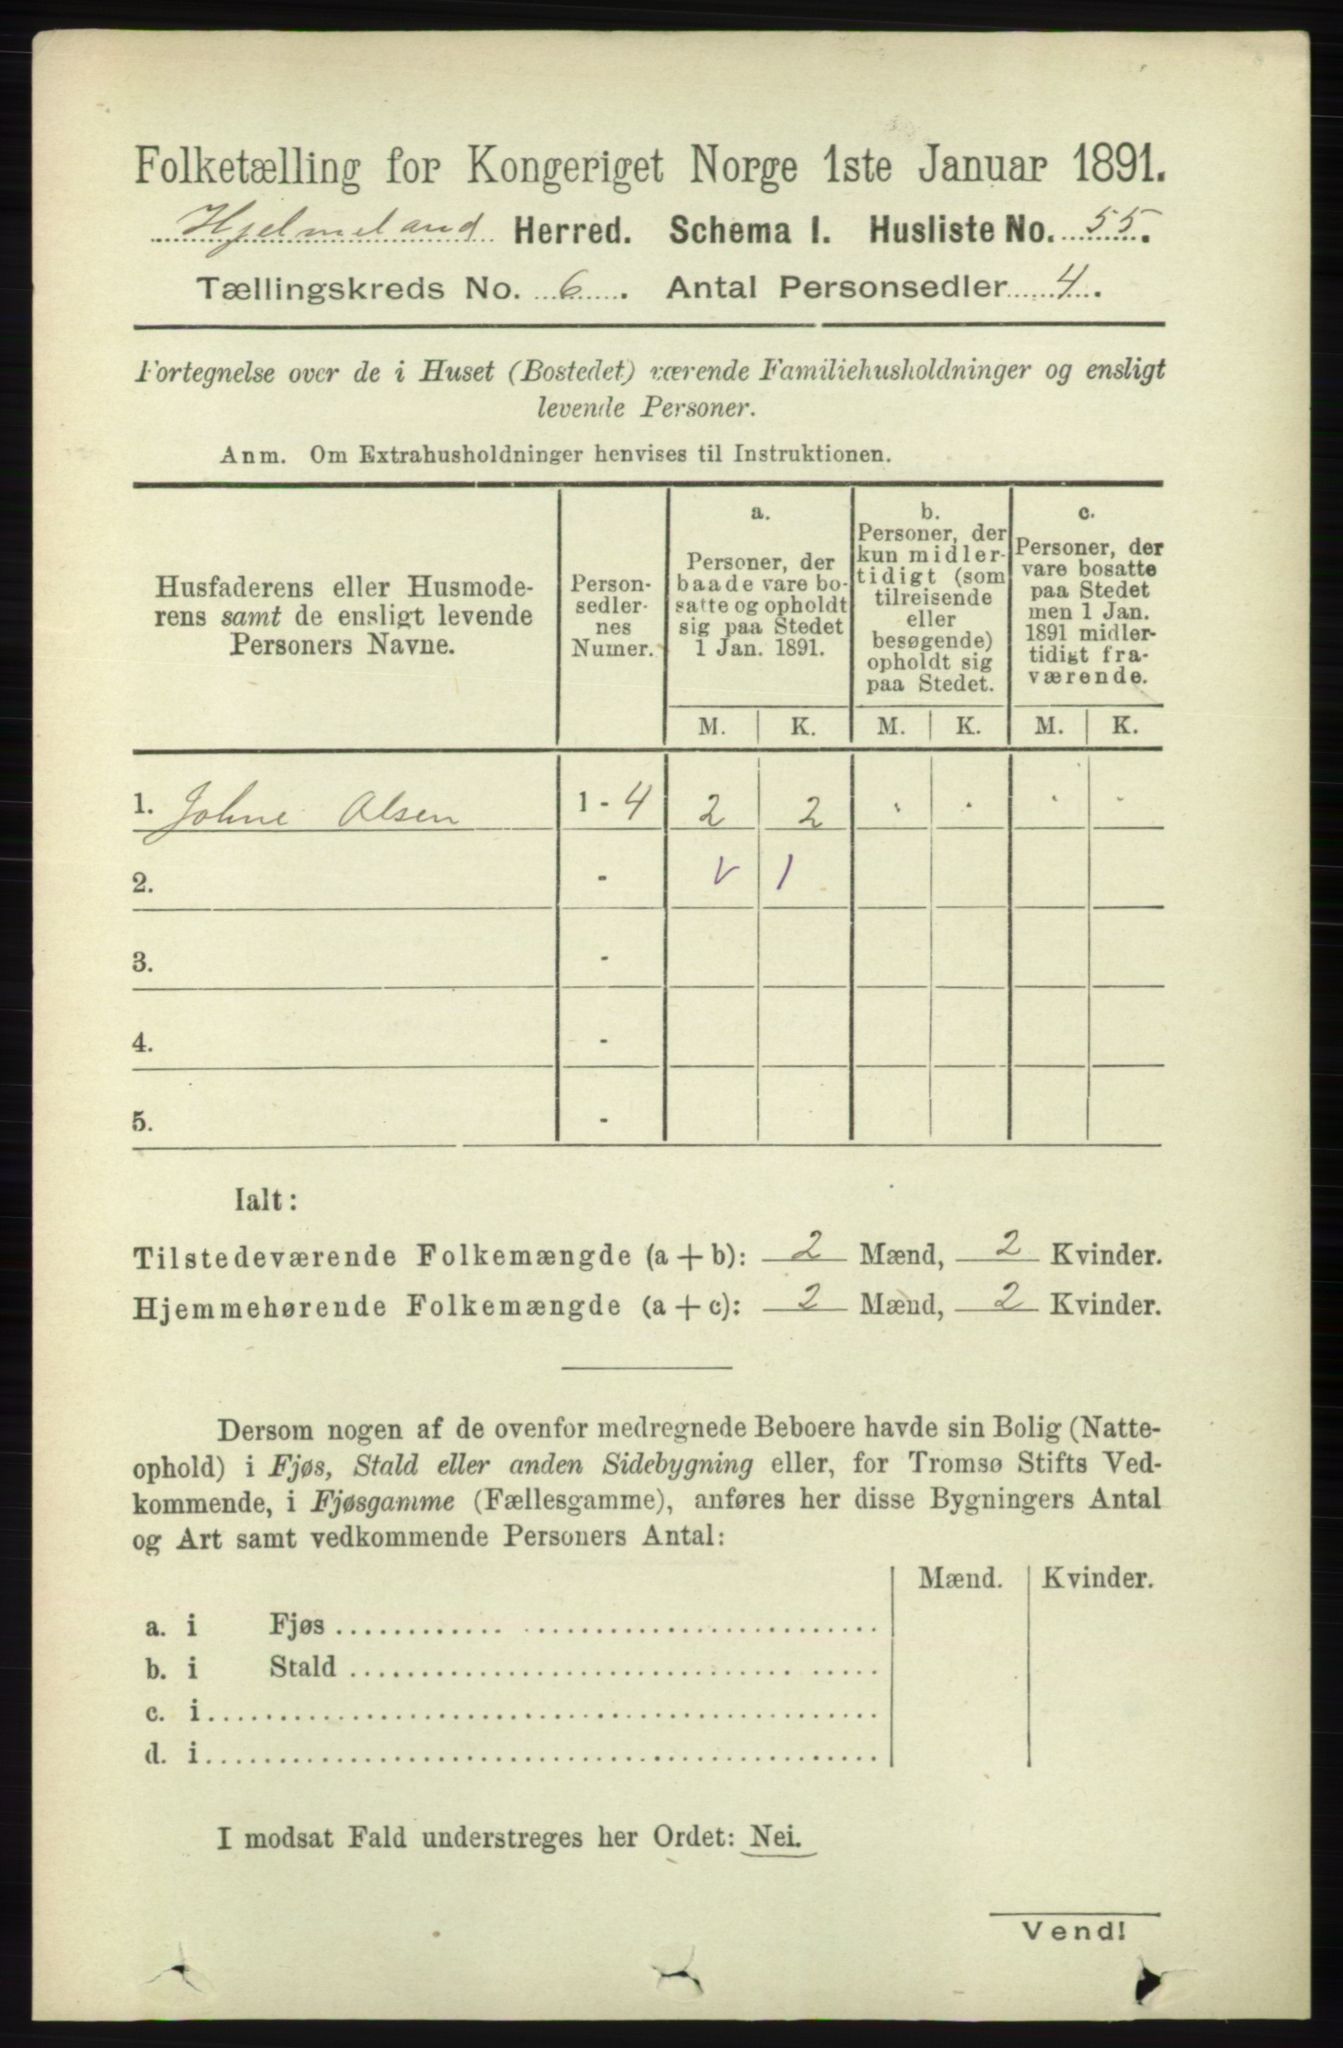 Folketælling for Kongeriget Norge 1ste Januar 1891.
Hjelmeland Herred. Schema I. Husliste No. 55.
Tællingskreds No. 6. Antal Personsedler 4.
Fortegnelse over de i Huset (Bostedet) værende Familiehusholdninger og ensligt
levende Personer.
Anm. Om Extrahusholdninger henvises til Instruktionen.
Husfaderens eller Husmode-
rens samt de ensligt levende
Personers Navne.
Person-
sedler-
nes
Numer.
a.
Personer, der
baade vare bo-
satte og opholdt
sig paa Stedet
1 Jan. 1891.
b.
Personer, der
kun midler-
tidigt (som
tilreisende
eller
besøgende)
opholdt sig
paa Stedet.
c.
Personer, der
vare bosatte
paa Stedet
men 1 Jan.
1891 midler-
tidigt fra-
værende.
M. K. M. K. M. K.
1. Johne Olsen 1 - 4 2 2 . . . .
2. - v 1
3. -
4. -
5. -
Ialt:
Tilstedeværende Folkemængde (a + b): 2 Mænd, 2 Kvinder.
Hjemmehørende Folkemængde (a + c): 2 Mænd, 2 Kvinder.
Dersom nogen af de ovenfor medregnede Beboere havde sin Bolig (Natte-
ophold) i Fjøs, Stald eller anden Sidebygning eller, for Tromsø Stifts Ved-
kommende, i Fjøsgamme (Fællesgamme), anføres her disse Bygningers Antal
og Art samt vedkommende Personers Antal:
Mænd. Kvinder.
a. i Fjøs
b. i Stald
c. i
d. i
I modsat Fald understreges her Ordet: Nei.
Vend!